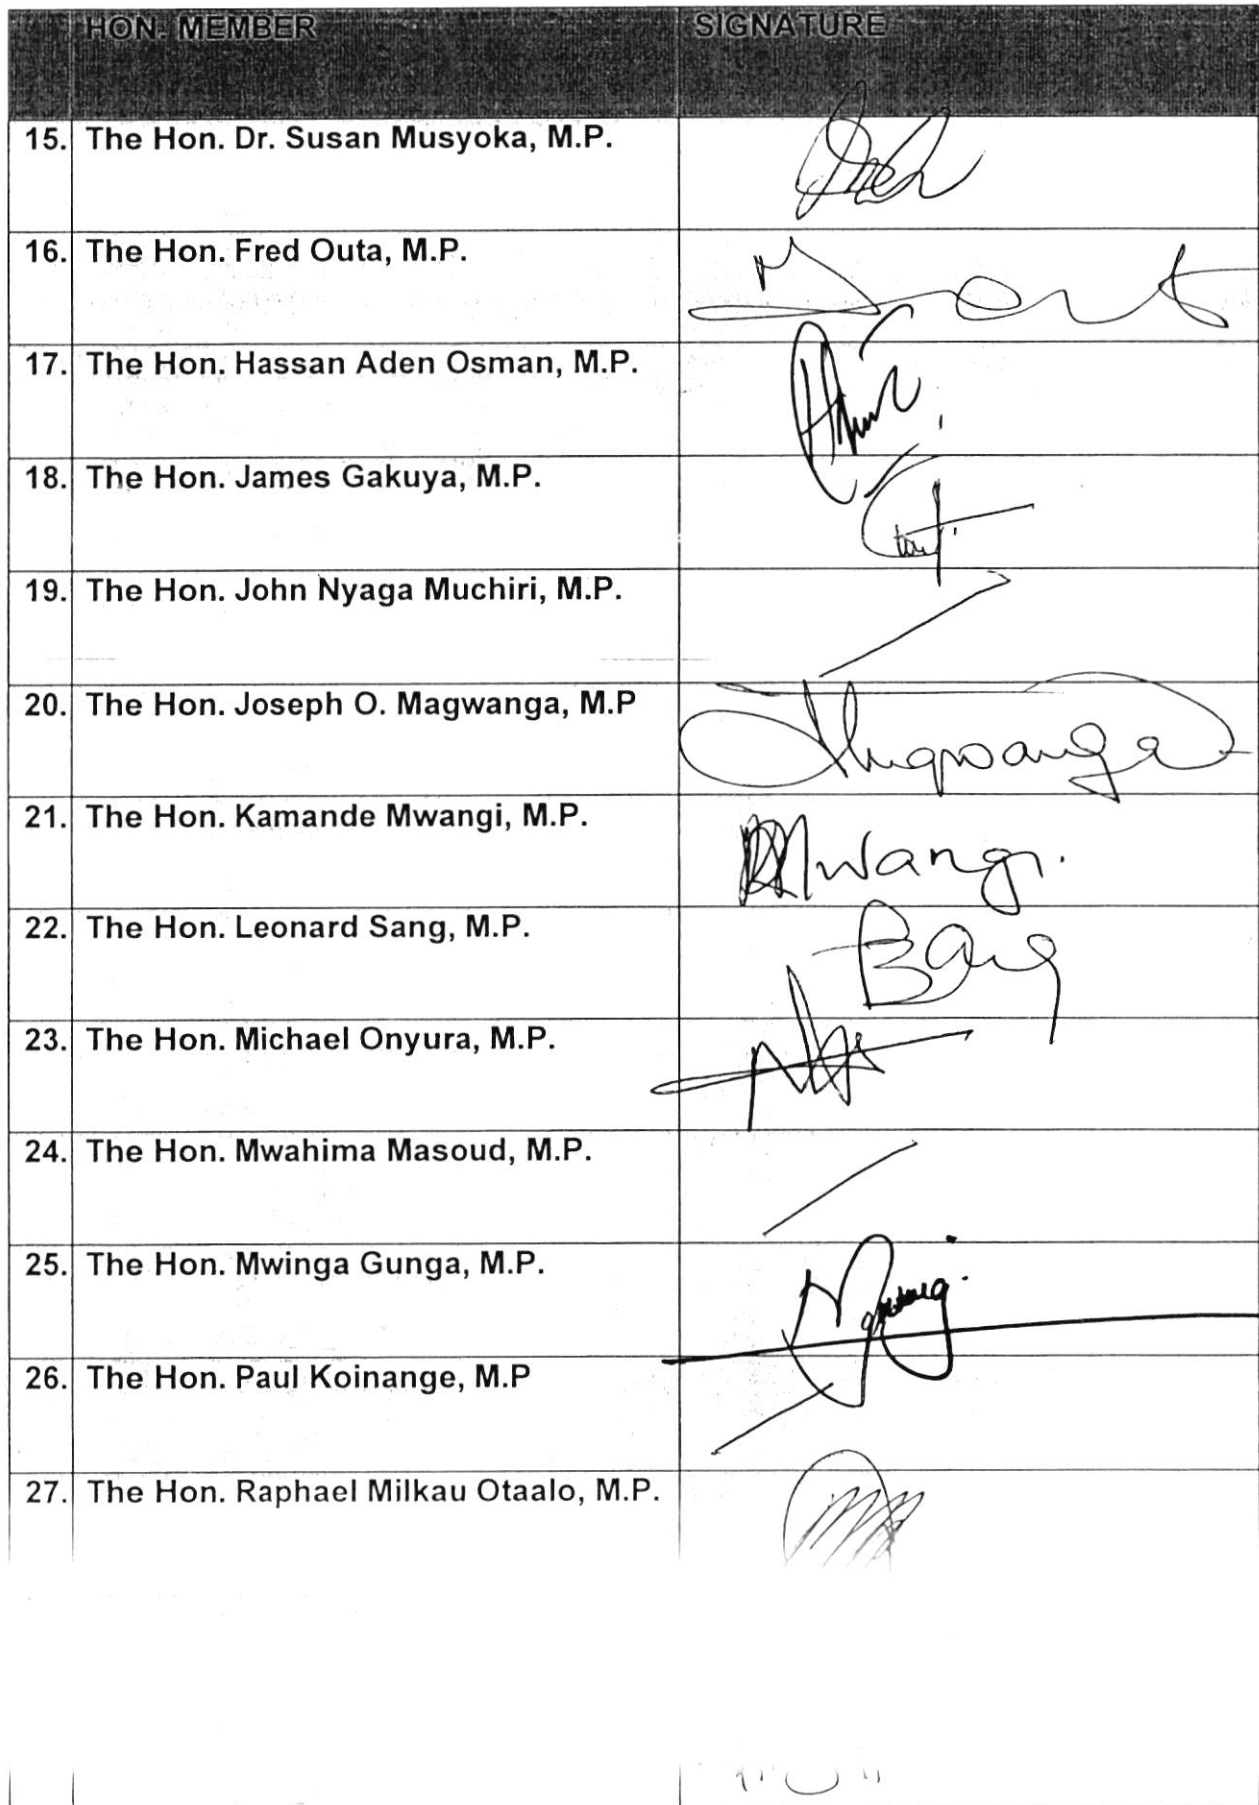 HON. MEMBER SIGNATURE
15. The Hon. Dr. Susan Musyoka, M.P.
16. The Hon. Fred Outa, M.P.
17. The Hon. Hassan Aden Osman, M.P.
18. The Hon. James Gakuya, M.P.
19. The Hon. John Nyaga Muchiri, M.P.
20. The Hon. Joseph O. Magwanga, M.P
21. The Hon. Kamande Mwangi, M.P. Mwangi.
22. The Hon. Leonard Sang, M.P.
23. The Hon. Michael Onyura, M.P.
24. The Hon. Mwahima Masoud, M.P.
25. The Hon. Mwinga Gunga, M.P.
26. The Hon. Paul Koinange, M.P
27. The Hon. Raphael Milkau Otaalo, M.P.